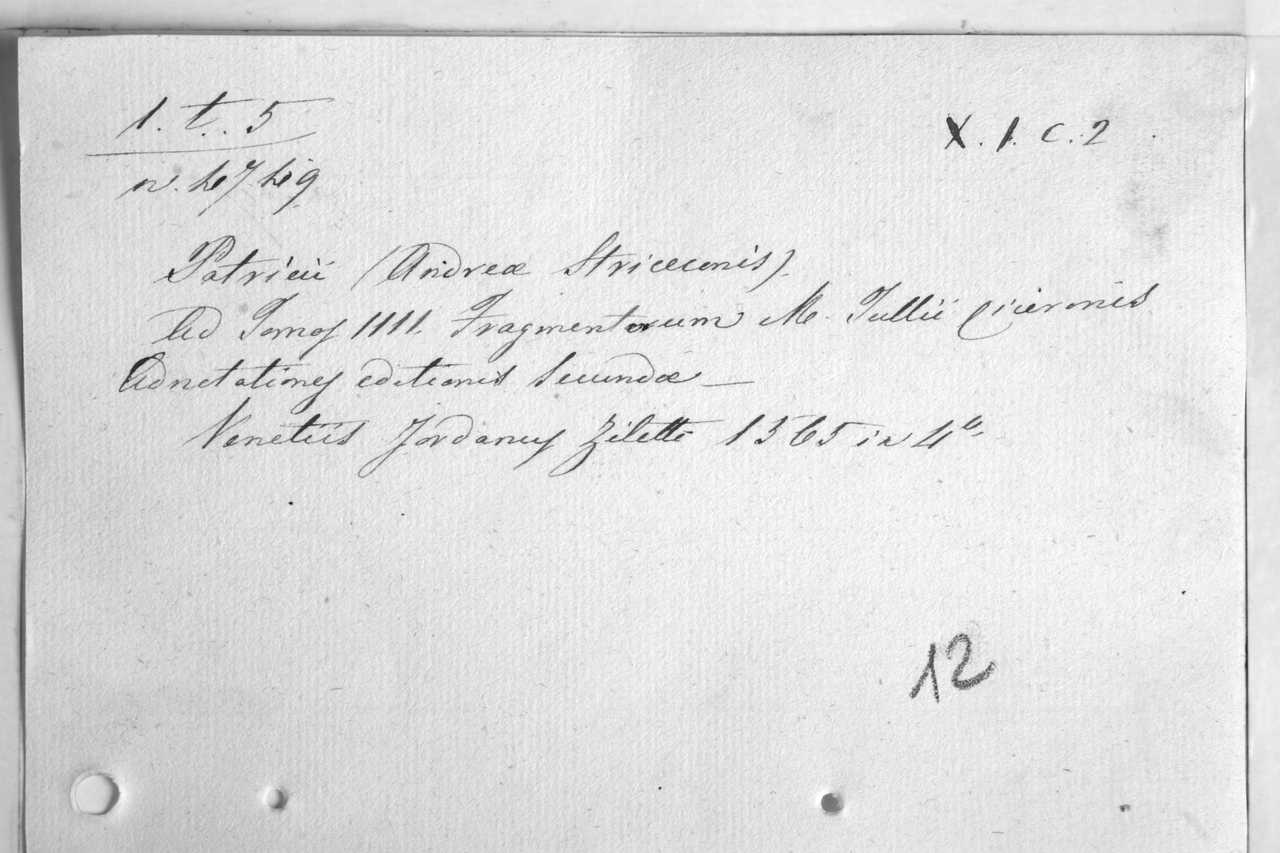 1. t. 5
X. 1. C. 2
n. 4749
Patricii (Andreæ Striceconis).
Ad Tomos 1111. Fragmentorum M. Tullii Ciceronis
Adnotationes editionis Secundæ —
Venetiis Jordanus Ziletti 1565 in 4to.
12